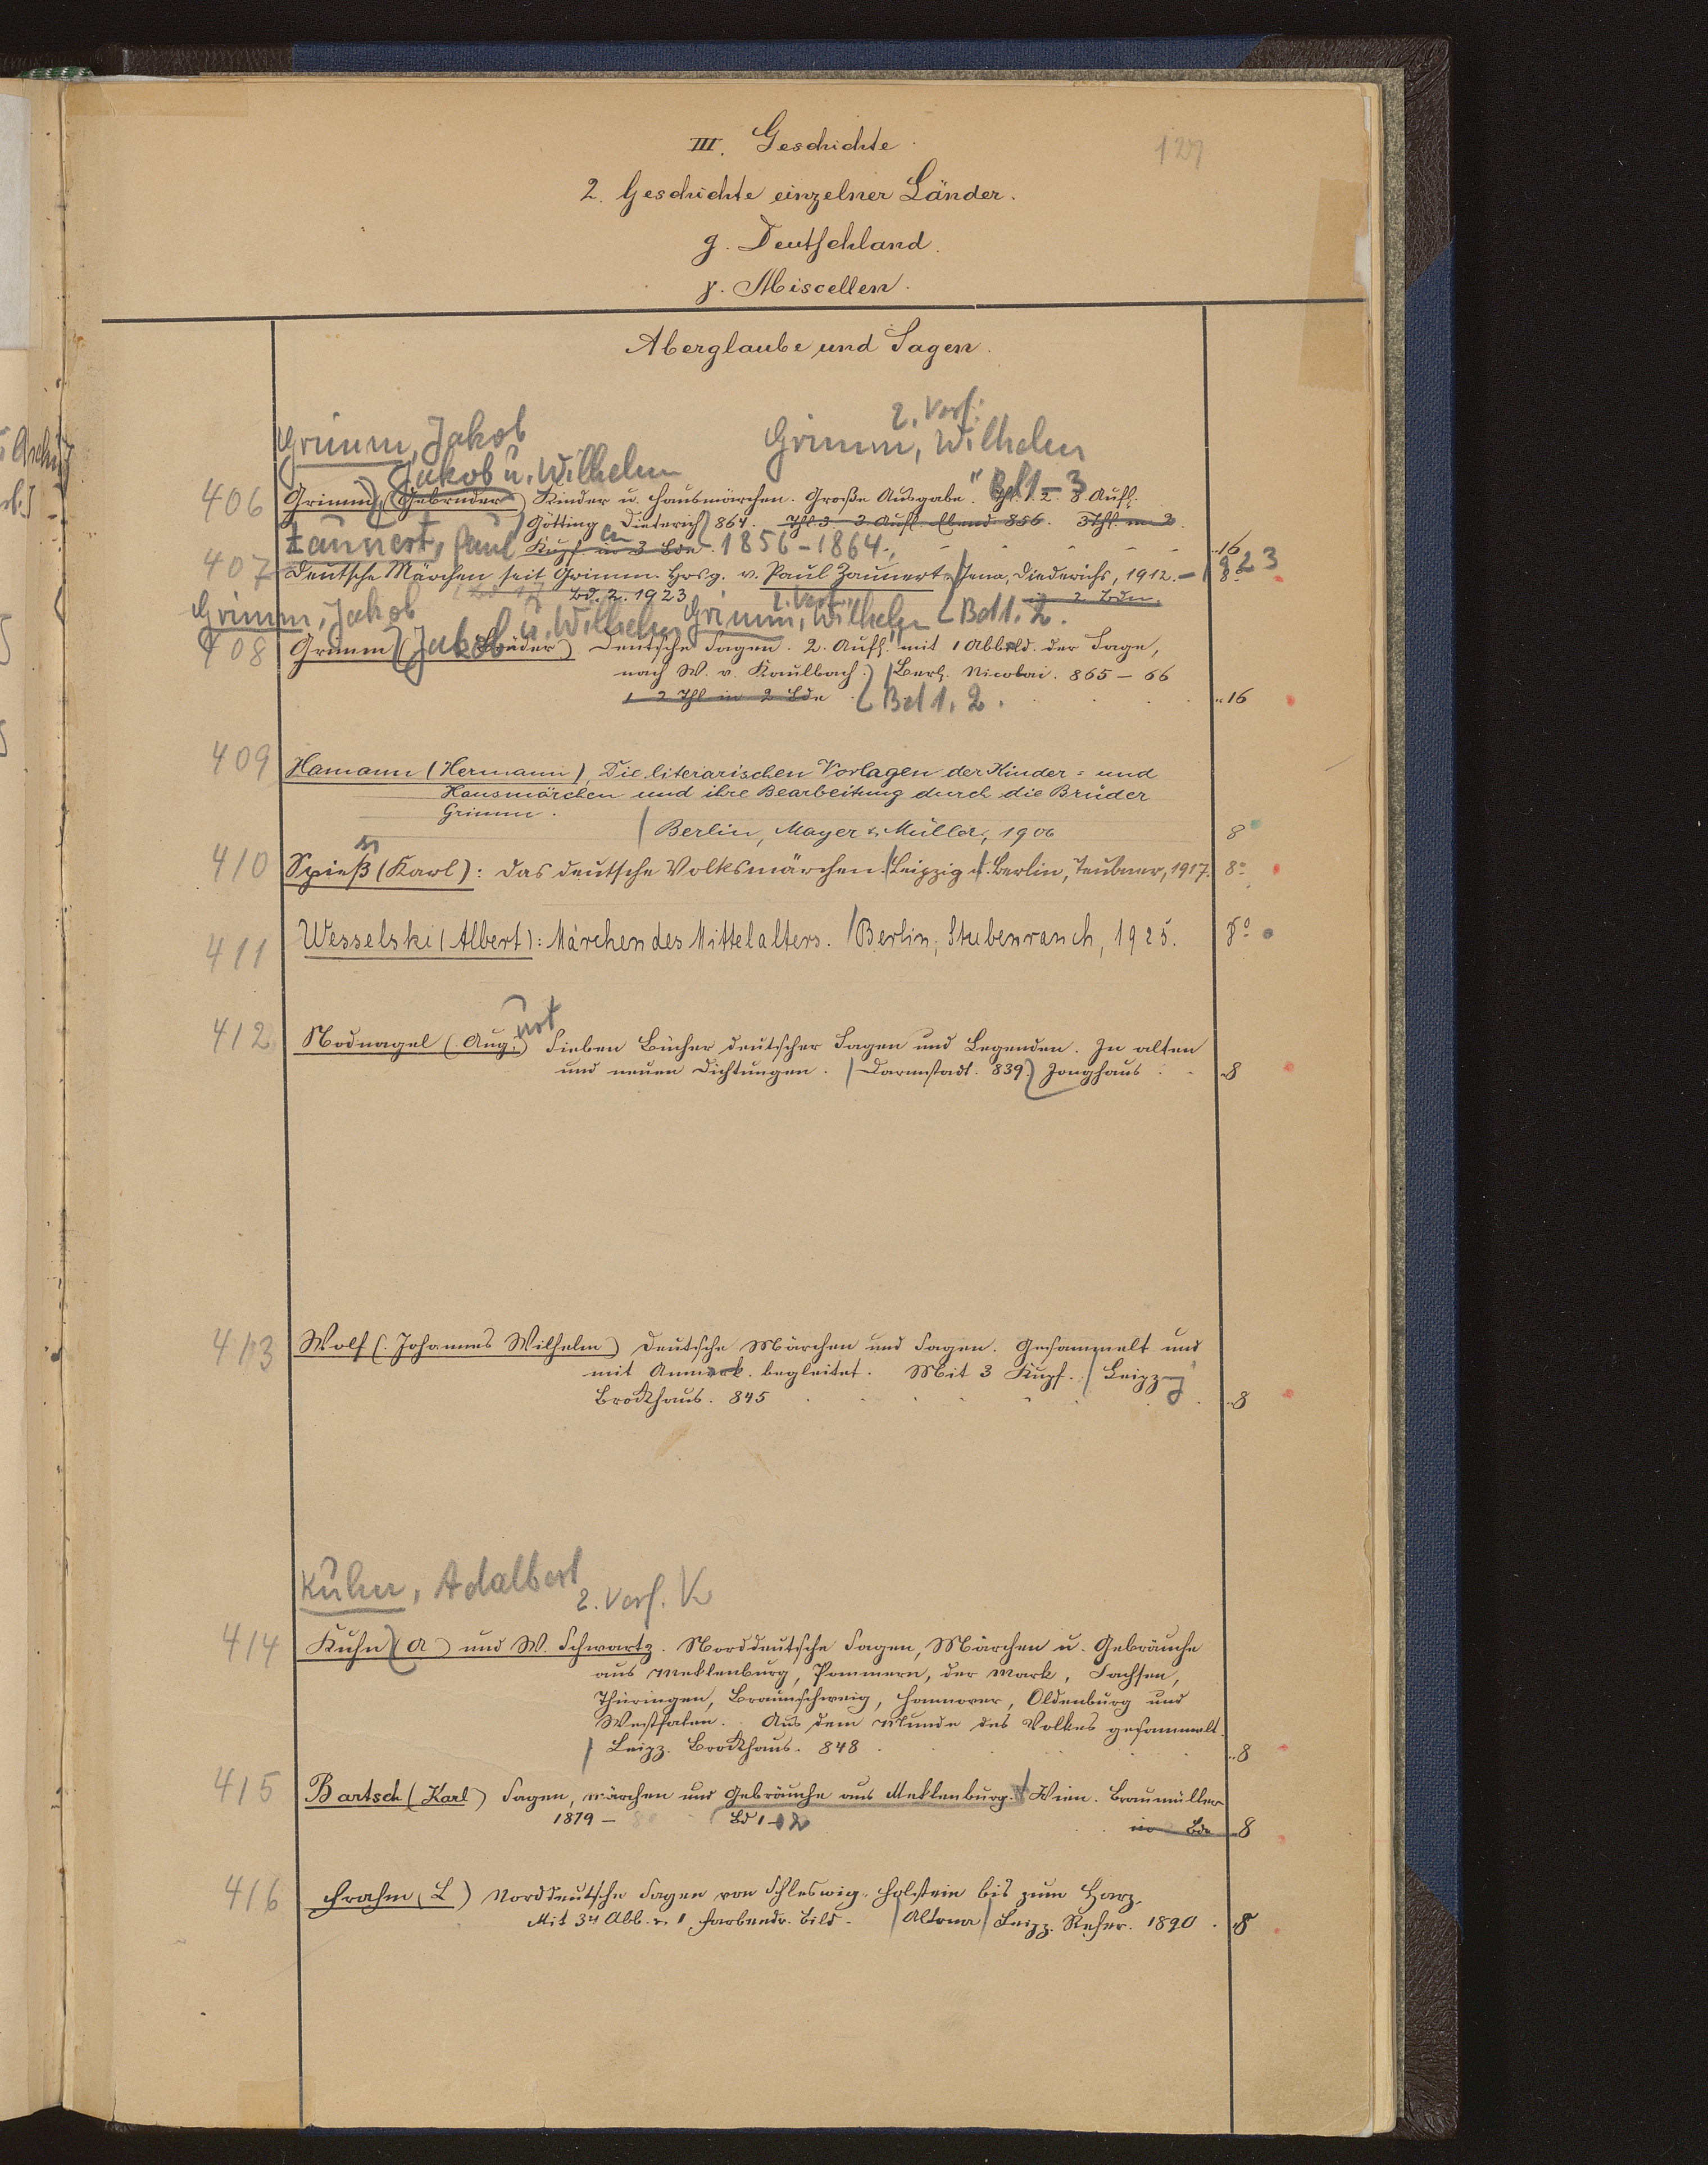 III. Geschichte.
127
2. Geschichte einzelner Länder.
g. Deutschland.
γ. Miscellen.
Aberglaube und Sagen.
2. Verf:
Grimm, Jakob Grimm, Wilhelm
Jakob u. Wilhelm Bd 1-3
406 Grimm (Gebruder) Kinder u. Hausmärchen. Große Ausgabe. Thl. 1. 2. 8. Aufl.
Götting Dieterich 864. Thl 3. 3. Aufl. Ebend 856. 3 Thl. in 3
Zaunert, Paul Kupf in 3 Bde. 1856-1864. 16
407 Deutsche Märchen seit Grimm. Hrsg. v. Paul Zaunert. Jena, Diederichs, 1912. - 1923 8°
Bd. 2. 1923 in 2 Bdn.
Grimm, Jakob 2. Verf. Grimm, Wilhelm Bd 1. 2.
Jakob u. Wilhelm
408 Grimm (Brüder) Deutsche Sagen. 2. Aufl. mit 1 Abbild. der Sage,
nach W. v. Kaulbach. Berl. Nicolai. 865-66
1 2 Thl in 2 Bde Bd 1. 2. 16
409 Hamann (Hermann), Die literarischen Vorlagen der Kinder= und
Hausmärchen und ihre Bearbeitung durch die Brüder
Grimm.
Berlin, Mayer & Müller, 1906 8
410 Spieß (Karl): Das deutsche Volksmärchen. Leipzig u. Berlin, Teubner, 1917. 8°
411 Wesselski (Albert): Märchen des Mittelalters. Berlin, Stubenrauch, 1925. 8°
412 Nodnagel (Aug.) Sieben Bücher deutscher Sagen und Legenden. In alten
und neuen Dichtungen. Darmstadt. 839. Jonghaus 8
413 Wolf (Johannes Wilhelm) Deutsche Märchen und Sagen. Gesammelt und
mit Anmerk. begleitet. Mit 3 Kupf. Leipzig
Brockhaus. 845 8
Kuhn, Adalbert 2. Verf. V
414 Kuhn (A) und W. Schwartz. Norddeutsche Sagen, Märchen u. Gebräuche
aus Meklenburg, Pommern, der Mark, Sachsen,
Thüringen, Braunschweig, Hannover, Oldenburg und
Westfalen. Aus dem Munde des Volkes gesammelt.
Leipz. Brockhaus. 848 8
415 Bartsch (Karl) Sagen, Märchen und Gebräuche aus Meklenburg. Wien. Braumüller
1879 - 80 Bd 1-2 in Bde 8
416 Frahm (L) Norddeutsche Sagen von Schleswig-Holstein bis zum Harz.
Mit 34 Abb. u. 1 farbendr. Bild. Altona Leipz. Reher. 1890. 8